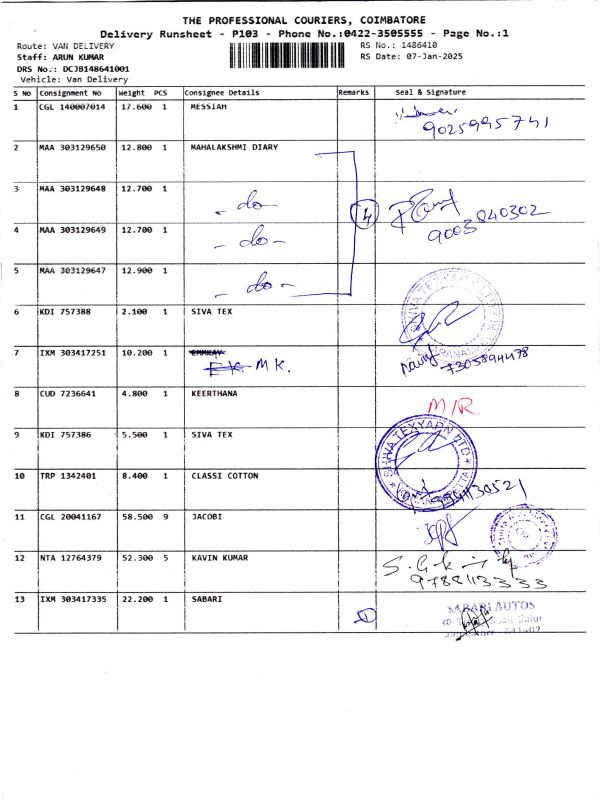 THE PROFESSIONAL COURIERS, COIMBATORE
Delivery Runsheet - P103 - Phone No.:0422-3505555 - Page No.:1
Route: VAN DELIVERY RS No.: 1486410
Staff: ARUN KUMAR RS Date: 07-Jan-2025
DRS No.: DCJB148641001
Vehicle: Van Delivery
S No Consignment No Weight PCS Consignee Details Remarks Seal & Signature
1 CGL 140007014 17.600 1 MESSIAH
9025995741
2 MAA 303129650 12.800 1 MAHALAKSHMI DIARY
3 MAA 303129648 12.700 1
- do - 4
9003840302
4 MAA 303129649 12.700 1
- do -
5 MAA 303129647 12.900 1
- do -
6 KDI 757388 2.100 1 SIVA TEX
7 IXM 303417251 10.200 1
M K.
8 CUD 7236641 4.800 1 KEERTHANA
M/R.
9 KDI 757386 5.500 1 SIVA TEX
10 TRP 1342401 8.400 1 CLASSI COTTON
11 CGL 20041167 58.500 9 JACOBI
12 NTA 12764379 52.300 5 KAVIN KUMAR
9788113333
13 IXM 303417335 22.200 1 SABARI
SABARI AUTOS